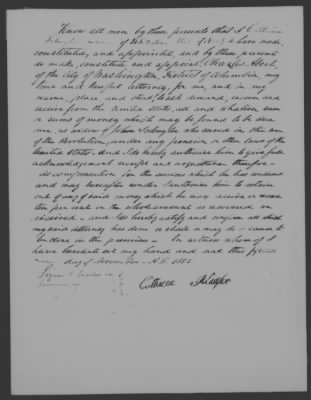 Know all men by these presents that I Catharine
of
have made,
constituted, and appointed, and by these presents
do make, constitute and appoint Charles Abert,
of the City of Washington, District of Columbia, my
true and lawful attorney, for me, and in my
name, place and stead, to ask, demand, recover and
receive from the United States, all and whatever, sum
or sums of money which may be found to be due
me, as widow of John who served in the war
of the Revolution, under any pension or other law of the
United States. And I do hereby authorize him to give full
acknowledgement receipt and acquittance therefor -
As compensation for the services which he has rendered
and may hereafter render I authorize him to retain
out of any of said money which he may receive or recover
ten per cent on the whole amount so recovered or
received - and I do hereby ratify and confirm all which
my said attorney has done or shall or may do or cause to
be done in the premises - In witness whereof I
have hereunto set my hand and seal this
day of November A.D. 1852
Catharine